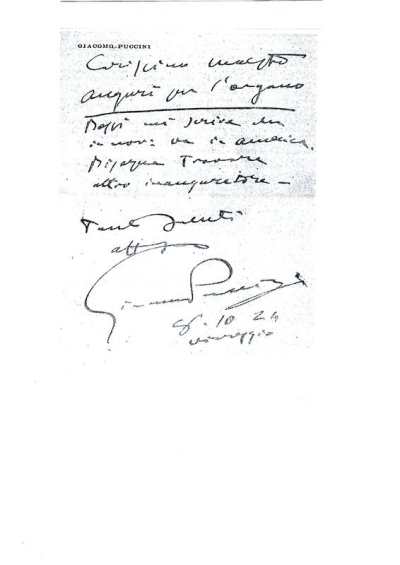 GIACOMO PUCCINI
Carissimo maestro
auguri per l'organo
Bossi mi scrive che
in nov: va in america.
Bisogna Trovare
altro inauguratore –
Tanti saluti
aff
Giacomo Puccini
10 24
viareggio